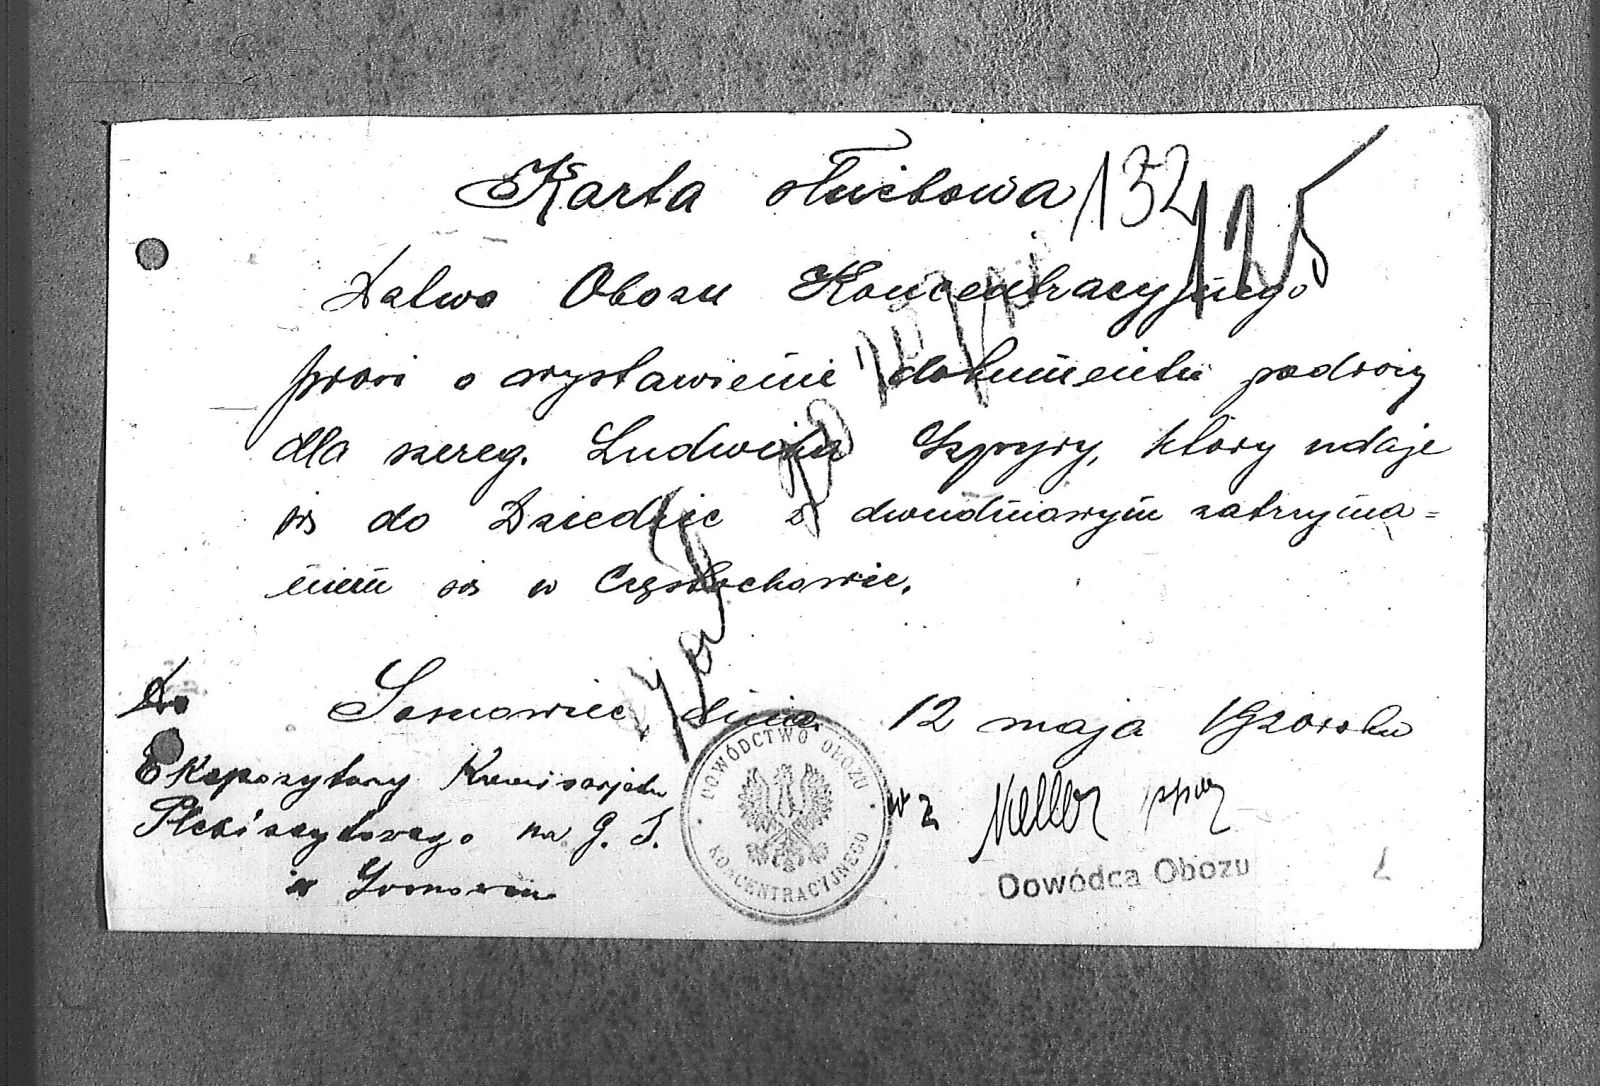 Karta służbowa 132
125
D-two Obozu Koncentracyjnego
prosi o wystawienie dokumentu podróży
dla szereg. Ludwika Szpyry, który udaje
się do Dziedzic z dwudniowym zatrzyma=
niem się w Częstochowie.
Sosnowiec dnia 12 maja 192 roku
Do
Ekspozytury Komisarjatu
Plebiscytowego na G. S.
w Sosnowcu
DOWÓDCTWO OBOZU
KONCENTRACYJNEGO
w z Keller
Dowódca Obozu